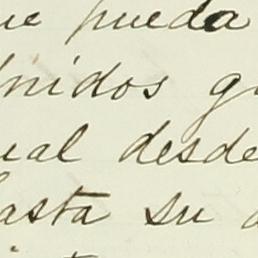 ue pueda
nidos g
ual desde
hasta su